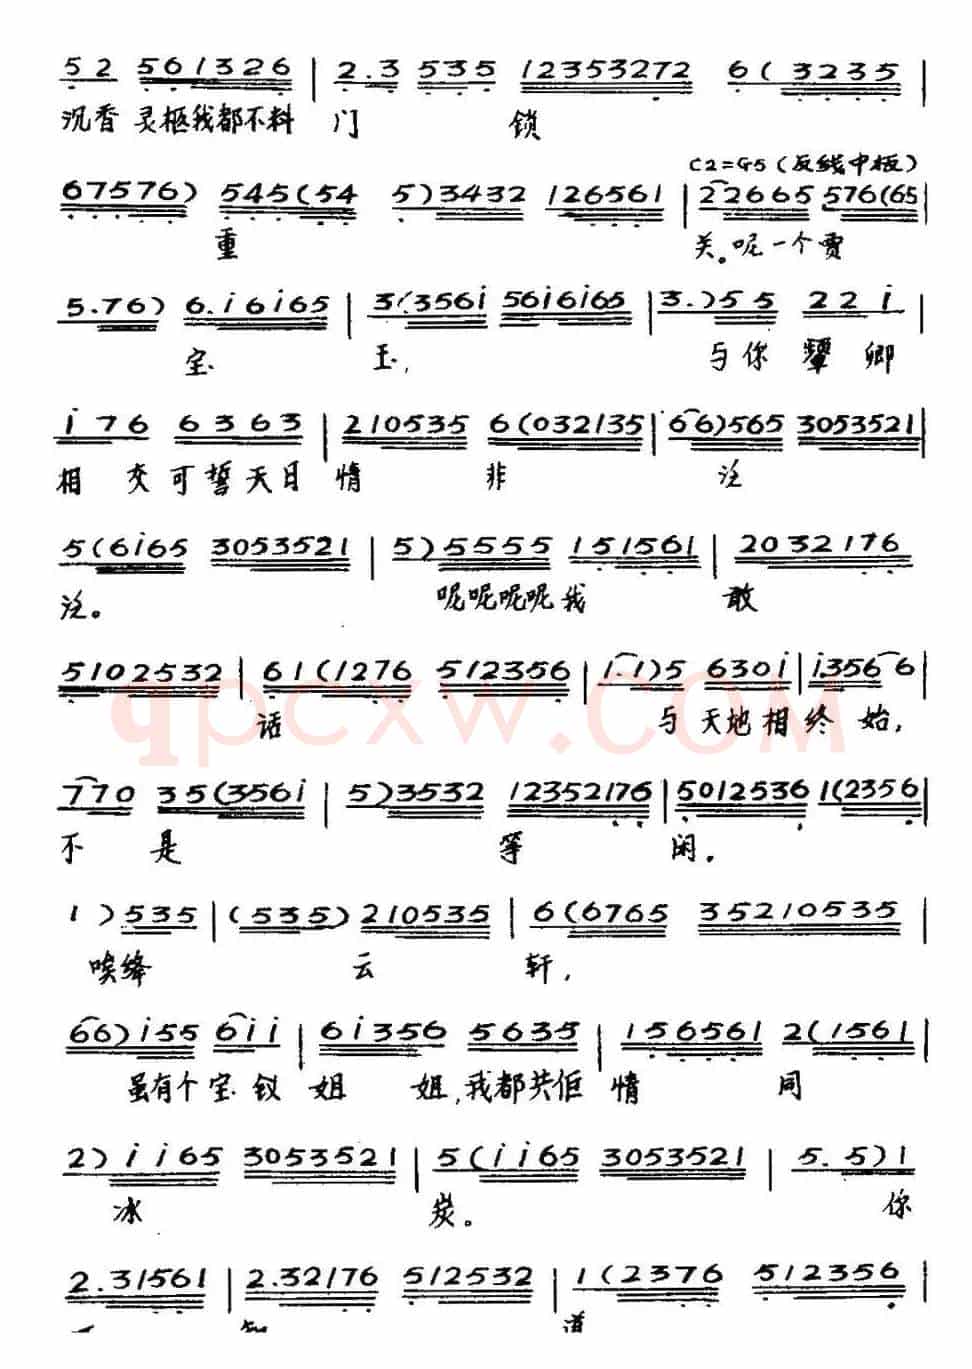 5 2 561326 | 2.3 535 12353272 6(3235 |
沉香 灵柩我都不料 门 锁
C2=G5(反线中板)
67576) 545(54 5)3432 126561 | 22665 576(65 |
重 关。呢一个贾
5.76) 6.i6i65 | 3(356i 56i6i65 | 3.)55 22i |
宝 玉, 与你颦卿
i76 6363 | 210535 6(032135 | (66)565 3053521 |
相交可誓天日情 非 泛
5(6i65 3053521 | 5)5555 151561 | 2032176
泛。 呢呢呢呢我 敢
5102532 | 61(1276 512356 | i(i)5 630i | i.3566
话 与天地相终始,
qpcxw.COM
770 35(356i | 5)3532 12352176 | 5012536 1(2356 |
不 是 等 闲。
1)535 | (535)210535 | 6(6765 35210535 |
唉绛 云 轩,
(66)i55 6ii | 6i356 5635 | 156561 2(1561 |
虽有个宝钗 姐 姐,我都共佢 情 同
2)ii65 3053521 | 5(ii65 3053521 | 5.5)1
冰 炭。 你
2.31561 | 2.32176 512532 | 1(2376 512356 |
道